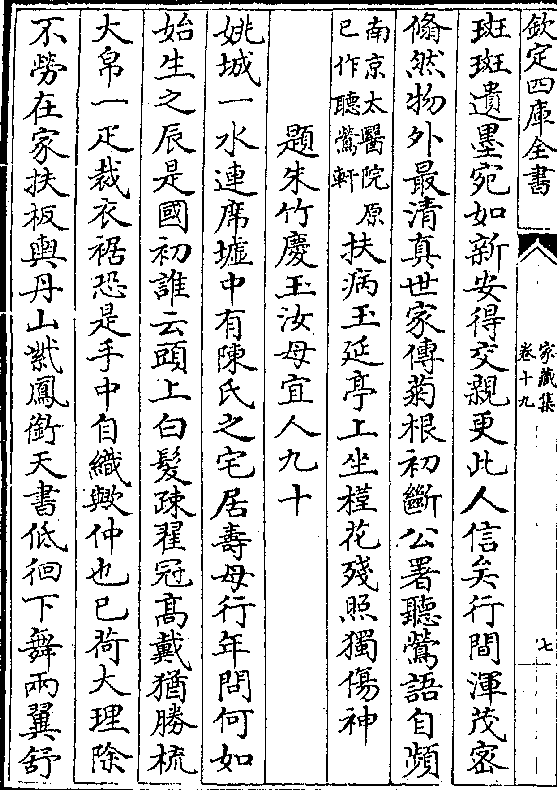 欽定四庫全書
家藏集
卷十九
七
斑斑遺墨宛如新安得交親更此人信矣行間渾茂密
翛然物外最清真世家傳菊根初斷公署聽鶯語自頻
南京太醫院原
已作聽鶯軒
扶病玉延亭上坐槿花殘照獨傷神
題朱竹慶玉汝母宜人九十
姚城一水連席墟中有陳氏之宅居壽母行年問何如
始生之辰是國初誰云頭上白髮疎翟冠高戴猶勝梳
大帛一疋裁衣裾恐是手中自織歟仲也已荷大理除
不勞在家扶板輿丹山紫鳳銜天書低徊下舞兩翼舒